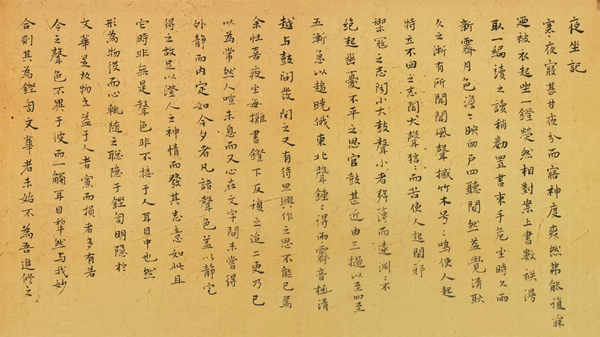 夜坐記
寒夜寢甚甘夜分而寤神度爽然弗能復寐
迺被衣起坐一鐙熒然相對案上書數袟漫
取一編讀之讀稍勌置書束手危坐時久雨
新霽月色澹々映囪戶四聽闃然蓋覺清耿
久之漸有所聞聞風聲撼竹木号々鳴使人起
特立不回之志聞犬聲狺々而苦使人起閑邪
禦寇之志聞小大鼓聲小者薄而遠淵々不
絶起幽憂不平之思官鼓甚近由三撾以至四至
五漸急以趨曉俄東北聲鍾々得雨霽音極清
越與鼓間發聞之又有待旦興作之思不能已焉
余性喜夜坐每攤書鐙下反復之迨二更乃已
以為常然人喧未息而又心在文字間未嘗得
外靜而內定如今夕者凡諸聲色蓋以靜定
得之故足以澄人之神情而發其志意如此且
它時非無是聲色非不接于人耳目中也然
形為物役而心輒隨之聰隱于鏗訇明隱於
文華是故物之益于人者寡而損者多有若
今之聲色不異于彼而一觸耳目犂然與我妙
合則其為鏗訇文華者未始不為吾進修之